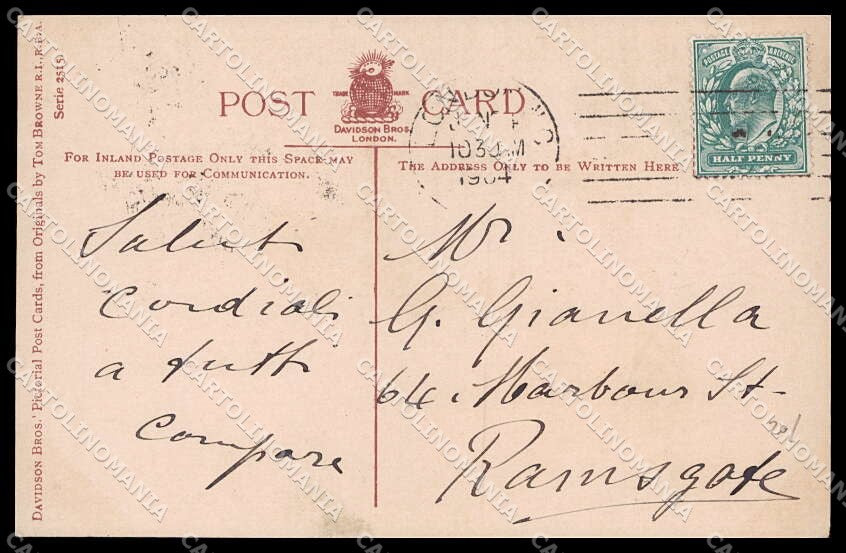 POST CARD
TRADE MARK
DAVIDSON BROS.
LONDON.
FOR INLAND POSTAGE ONLY THIS SPACE MAY
BE USED FOR COMMUNICATION.
THE ADDRESS ONLY TO BE WRITTEN HERE
POSTAGE REVENUE
HALF PENNY
1030 M
1904
Saluti
cordiali
a tutti
Compare
Mr.
G. Gianella
64 Harbour St
Ramsgate
DAVIDSON BROS.' Pictorial Post Cards, from Originals by TOM BROWNE R.I., R.B.A.
Serie 2515
CARTOLINOMANIA